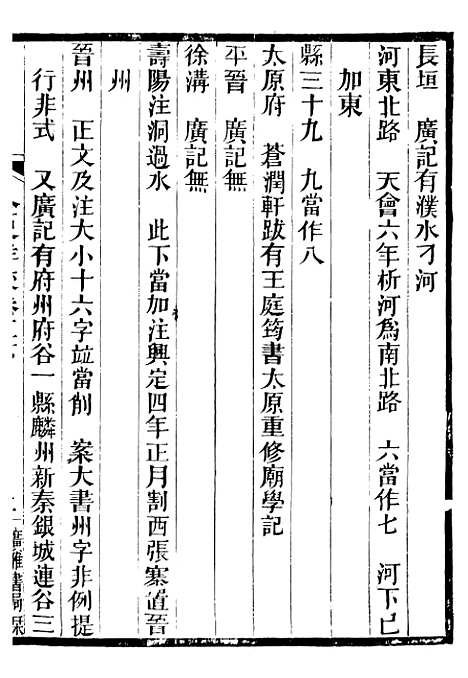 長垣　廣記有濮水刁河
河東北路　天會六年析河爲南北路　六當作七　河下已
加東
縣三十九　九當作八
太原府　蒼潤軒跋有王庭筠書太原重修廟學記
平晉　廣記無
徐溝　廣記無
壽陽注洞過水　此下當加注興定四年正月割西張寨置晉
州
晉州　正文及注大小十六字竝當削　案大書州字非例提
行非式　又廣記有府州府谷一縣麟州新秦銀城連谷三
廣雅書局栞